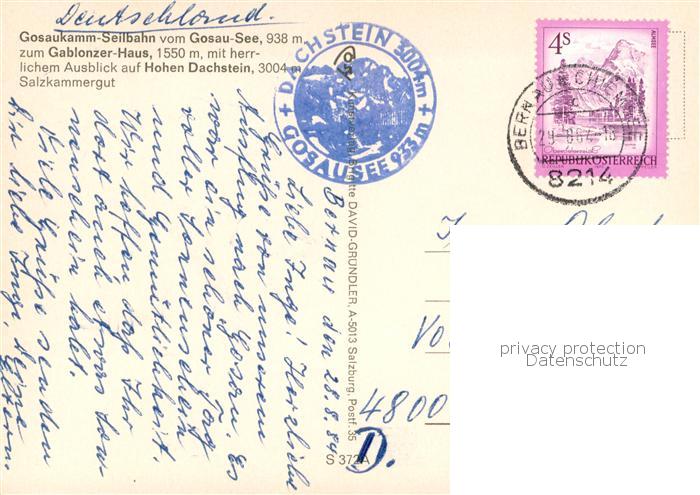 Deutschland.
Gosaukamm-Seilbahn vom Gosau-See, 938 m
zum Gablonzer-Haus, 1550 m, mit herr-
lichem Ausblick auf Hohen Dachstein, 3004 m
Salzkammergut
DACHSTEIN 3004 m
GOSAUSEE 933 m
4S
ALMSEE
REPUBLIK ÖSTERREICH
BERNAU CHIEM
8214
Bernau den 28.8.84
Liebe Inge! Herzliche
Grüße von unserem
Ausflug nach Gosau. Es
war ein schöner Tag
voller Sonnenschein
und Gemütlichkeit.
Wir hoffen daß Ihr
dort auch etwas Son
nenschein habt.
Viele Grüße senden
Dir liebe Inge, Deine
Eltern.
Kunstverlag Brigitte DAVID-GRÜNDLER, A-5013 Salzburg, Postf. 35
S 372A
4800
D.
privacy protection
Datenschutz